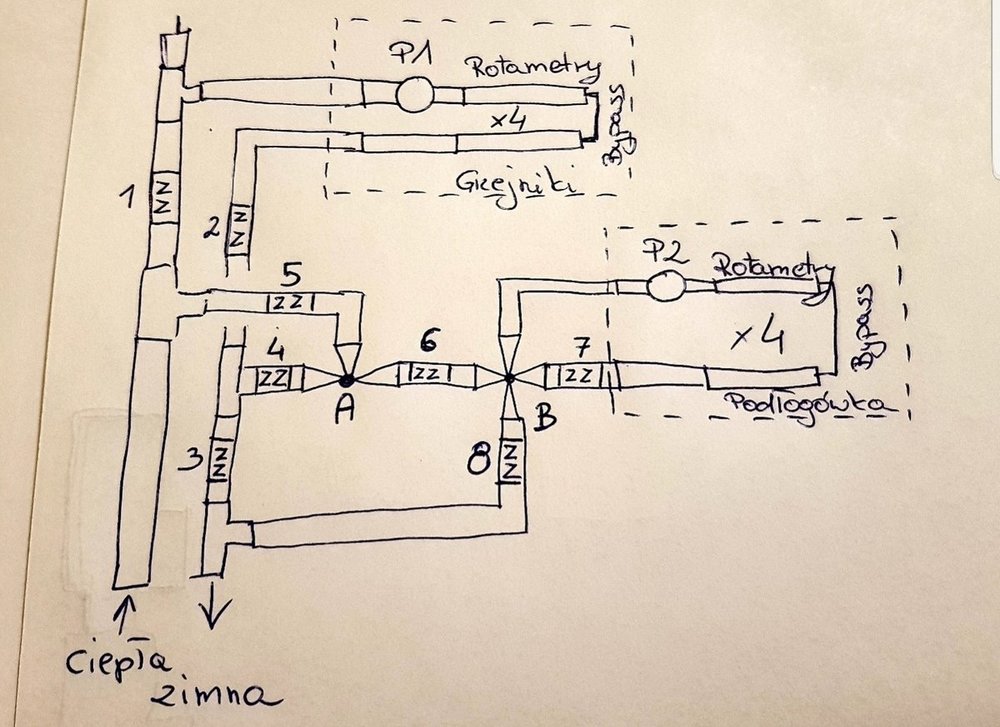 P1
Rotametry
x4
Bypass
Grzejniki
1
2
5
P2
Rotametry
x4
Bypass
4
6
7
A
B
Podłogówka
3
8
ciepła
zimna